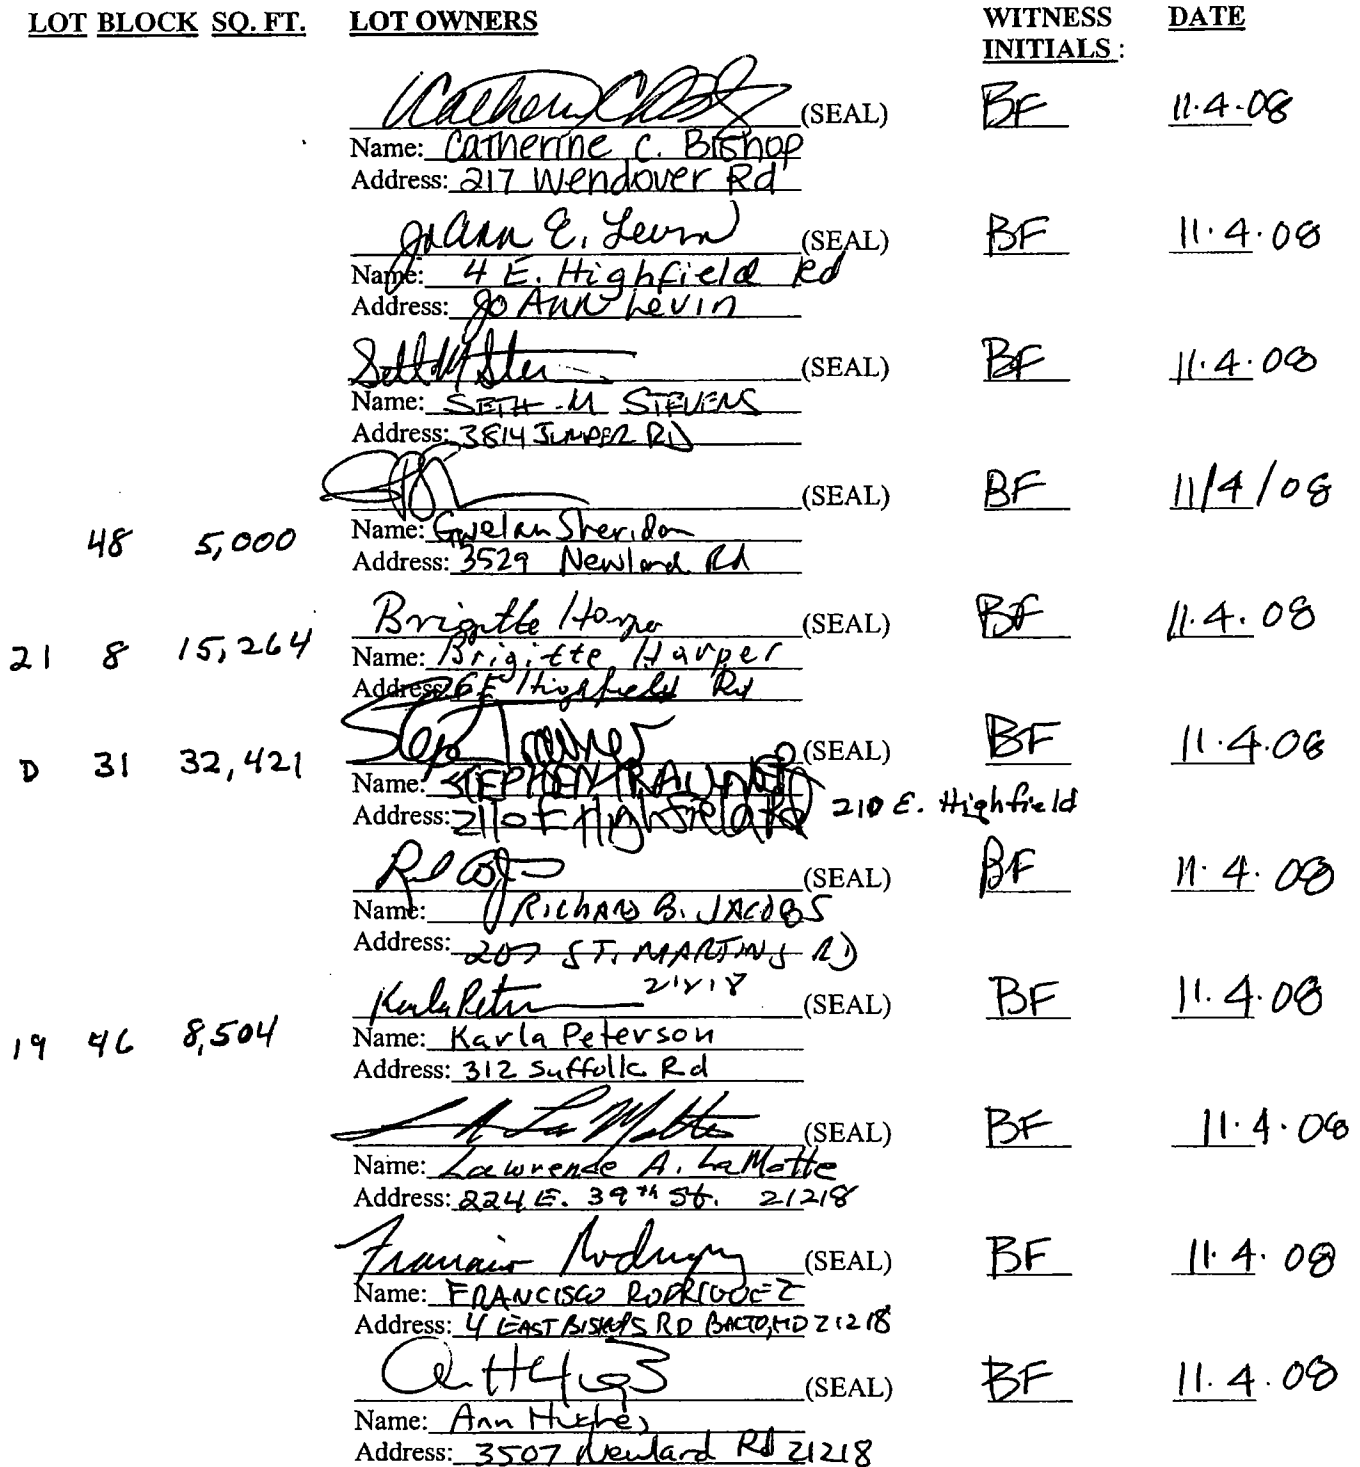 LOT BLOCK SQ. FT. LOT OWNERS WITNESS INITIALS : DATE
Catherine C Bishop (SEAL) BF 11.4.08
Name: Catherine C. Bishop
Address: 217 Wendover Rd
JoAnn E. Levin (SEAL) BF 11.4.08
Name: 4 E. Highfield Rd
Address: JoAnn Levin
Seth M Stevens (SEAL) BF 11.4.08
Name: SETH M STEVENS
Address: 3814 JUNIPER RD
(SEAL) BF 11/4/08
48 5,000 Name: Gwelan Sheridan
Address: 3529 Newland Rd
Brigitte Harper (SEAL) BF 11.4.08
21 8 15,264 Name: Brigitte Harper
Address: 6 E Highfield Rd
(SEAL) BF 11.4.08
D 31 32,421 Name: STEPHEN TRAUNER
Address: 210 E Highfield Rd 210 E. Highfield
(SEAL) BF 11.4.08
Name: RICHARD B. JACOBS
Address: 207 ST. MARTINS RD
21218
Karla Peterson (SEAL) BF 11.4.08
19 46 8,504 Name: Karla Peterson
Address: 312 Suffolk Rd
L A LaMotte (SEAL) BF 11.4.08
Name: Lawrence A. LaMotte
Address: 224 E. 39th St. 21218
Francisco Rodriguez (SEAL) BF 11.4.08
Name: FRANCISCO RODRIGUEZ
Address: 4 EAST BISHOPS RD BALTO, MD 21218
(SEAL) BF 11.4.08
Name: Ann Hughes
Address: 3507 Newland Rd 21218